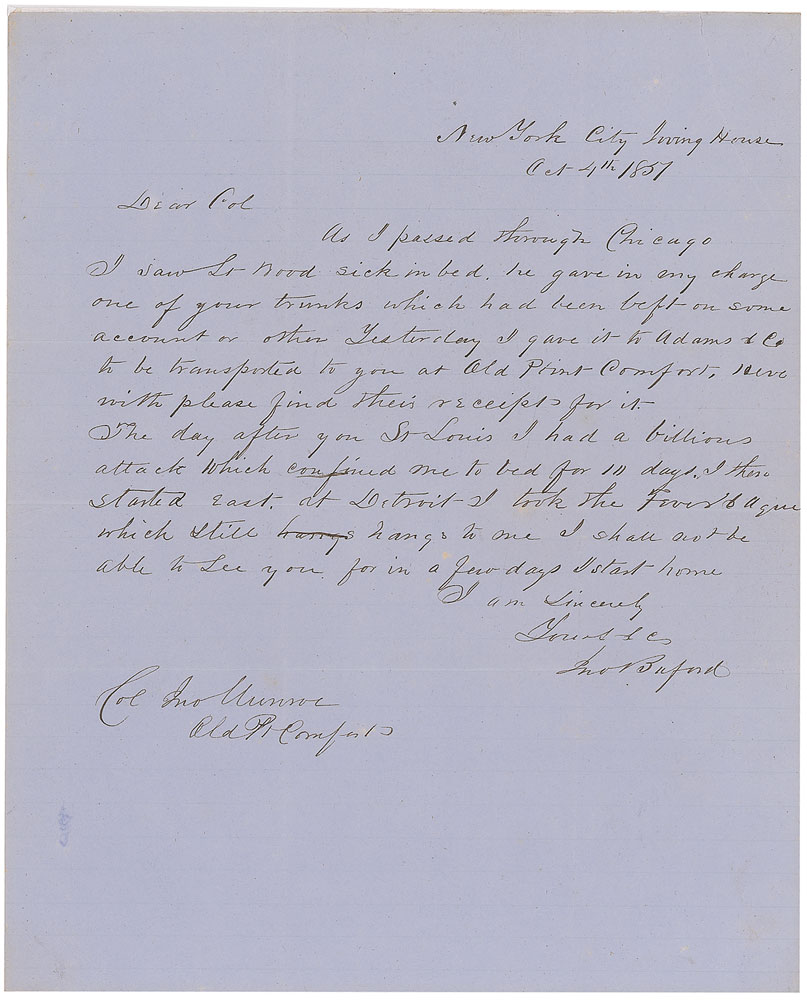 New York City Irving House
Oct 4th 1851
Dear Col
As I passed through Chicago
I saw Lt Wood sick in bed. he gave in my charge
one of your trunks which had been left on some
account or other Yesterday I gave it to Adams & Co
to be transported to you at Old Point Comfort, Here
with please find their receipt for it.
The day after you St Louis I had a billious
attack which confined me to bed for 10 days. I then
started East. at Detroit I took the Fever & Ague
which still hangs hangs to me I shall not be
able to see you for in a few days I start home
I am Sincerely
Yours &c
Jno Buford
Col Jno Munroe
Old Pt Comfort